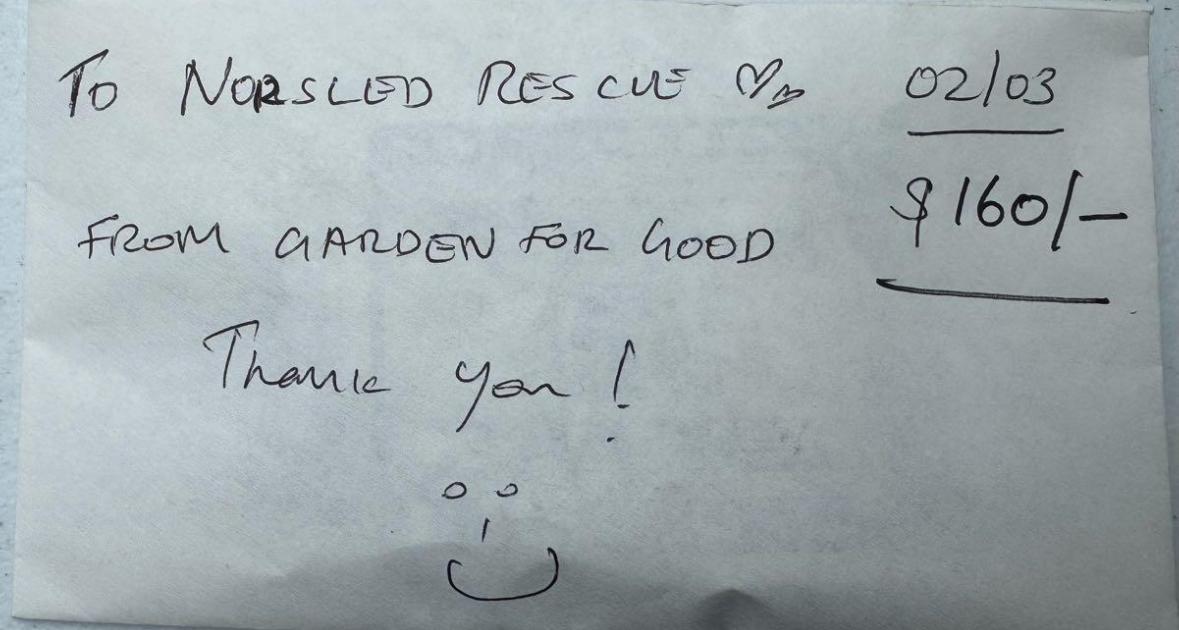 To NORSLED RESCUE ♡♡ 02/03
$160/-
FROM GARDEN FOR GOOD
Thank you!